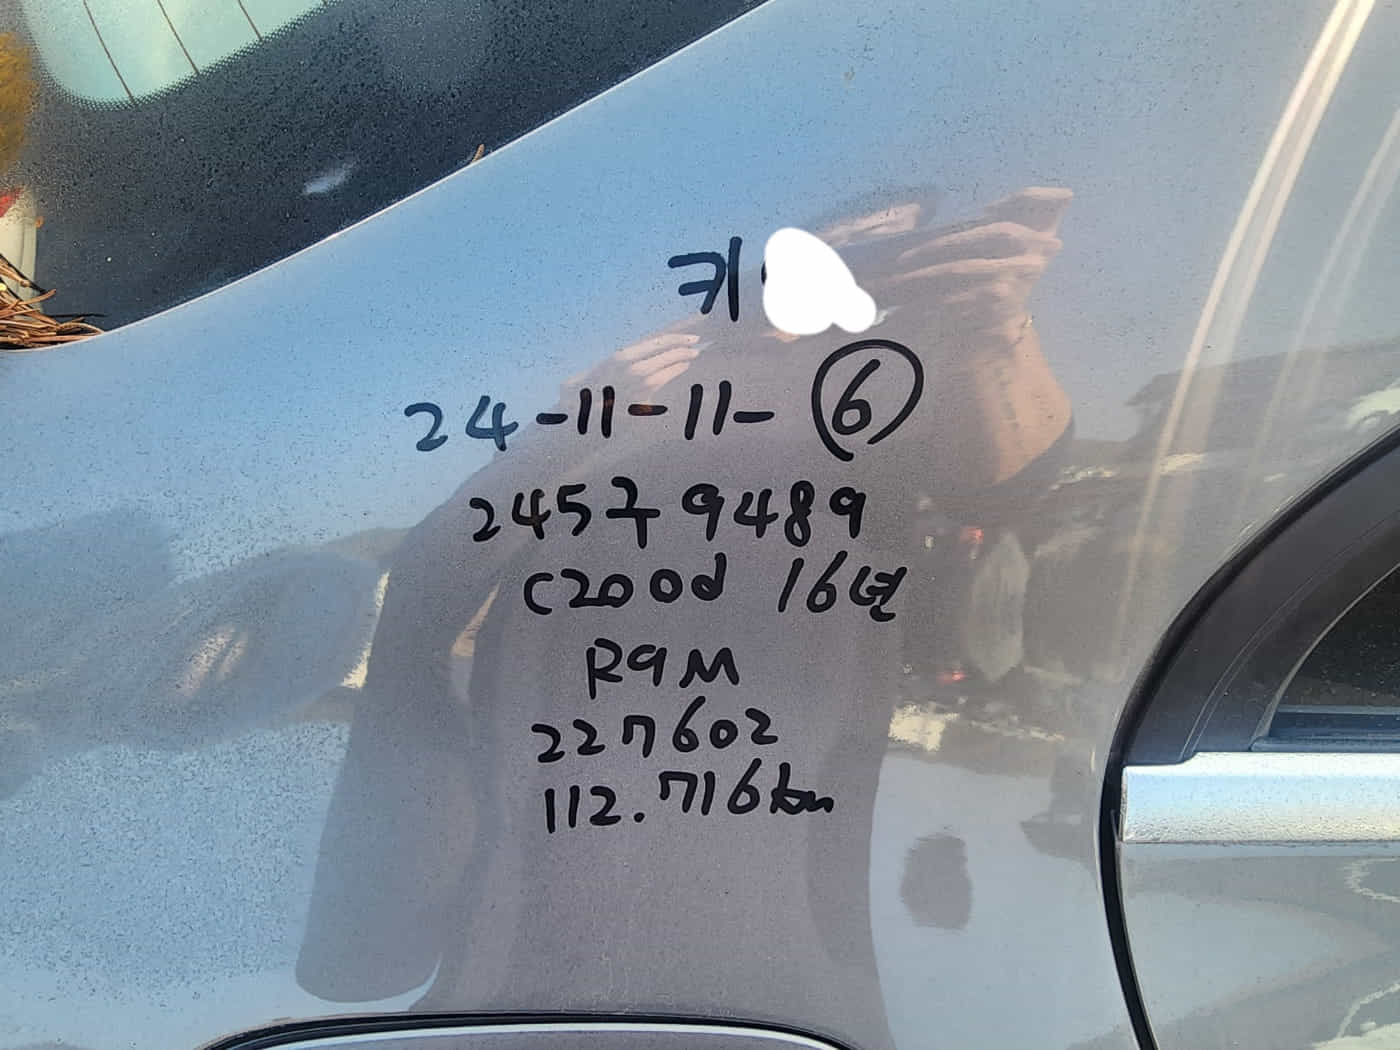 키
24-11-11- ⑥
245구9489
C200d 16년
R9M
227602
112.716km